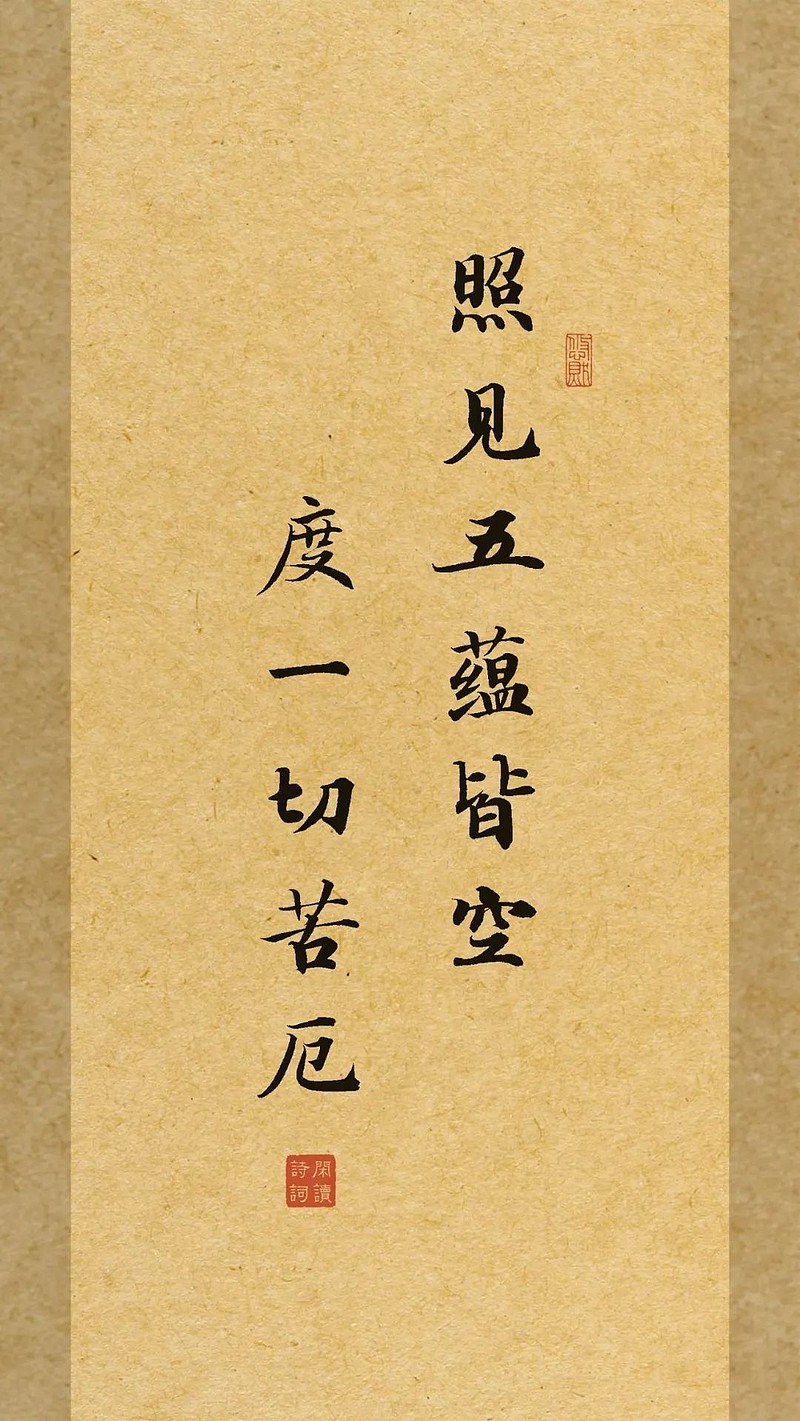 照见五蕴皆空
度一切苦厄
閑讀詩詞